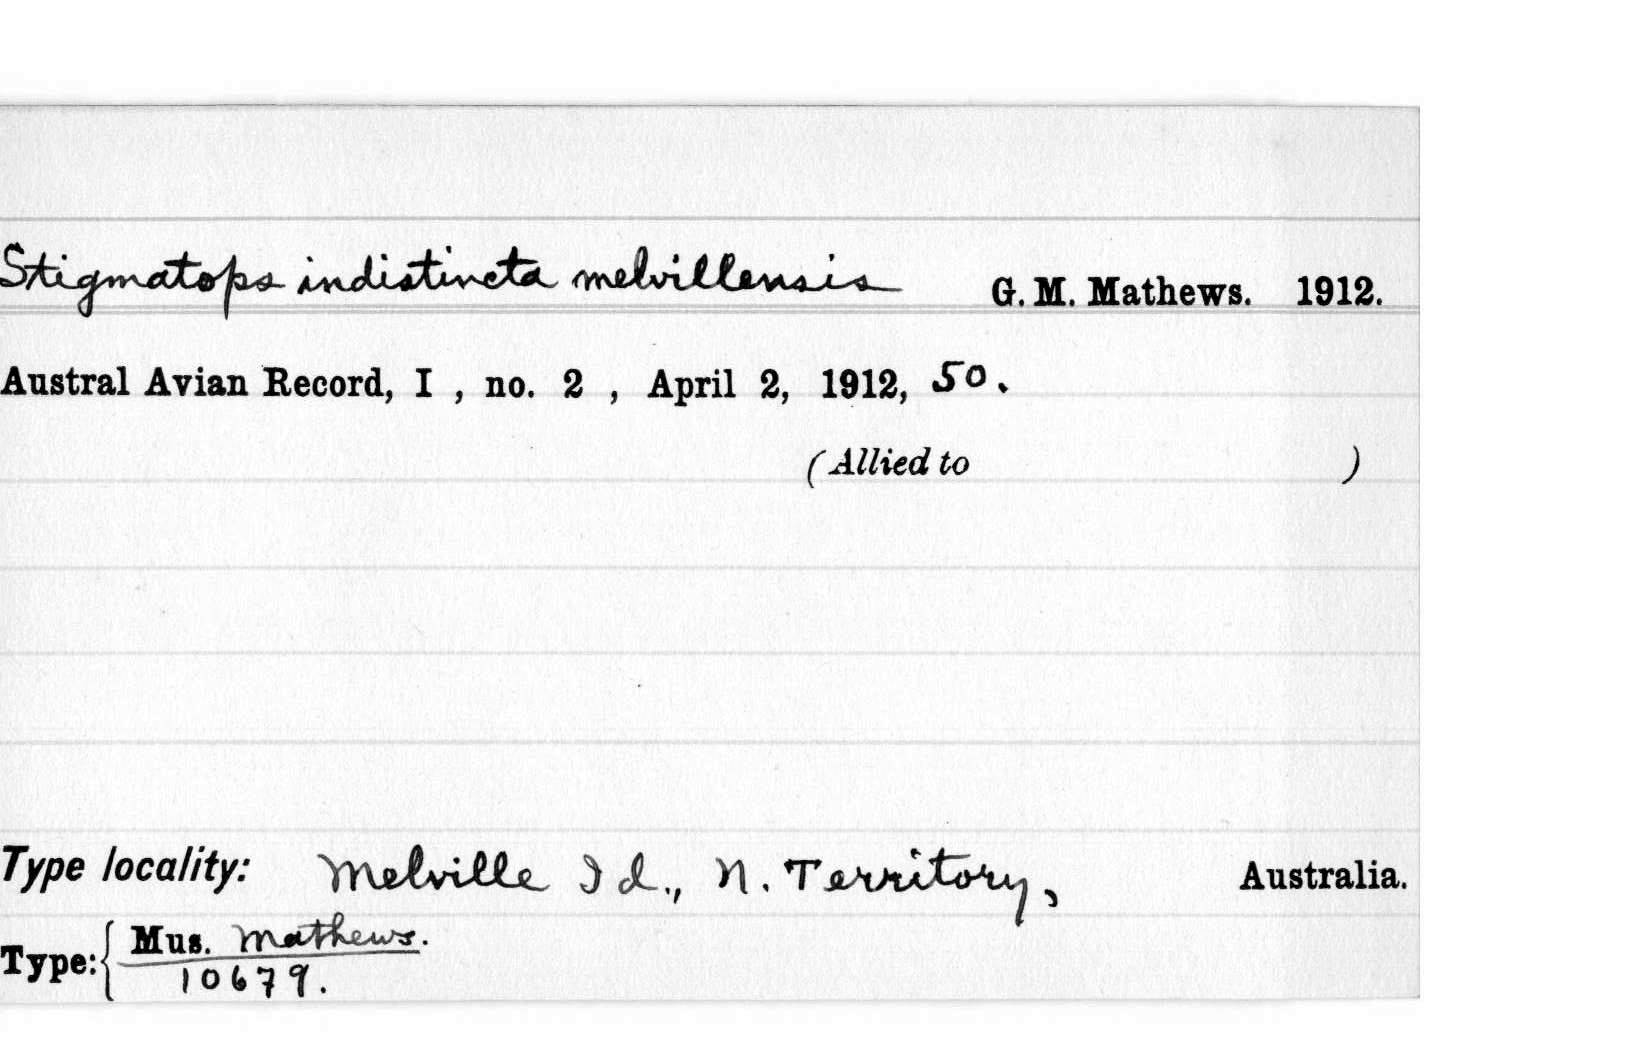 Stigmatops indistincta melvillensis G. M. Mathews. 1912.
Austral Avian Record, I , no. 2 , April 2, 1912, 50.
(Allied to )
Type locality: Melville Id., N. Territory, Australia.
Type: { Mus. Mathews.
10679.